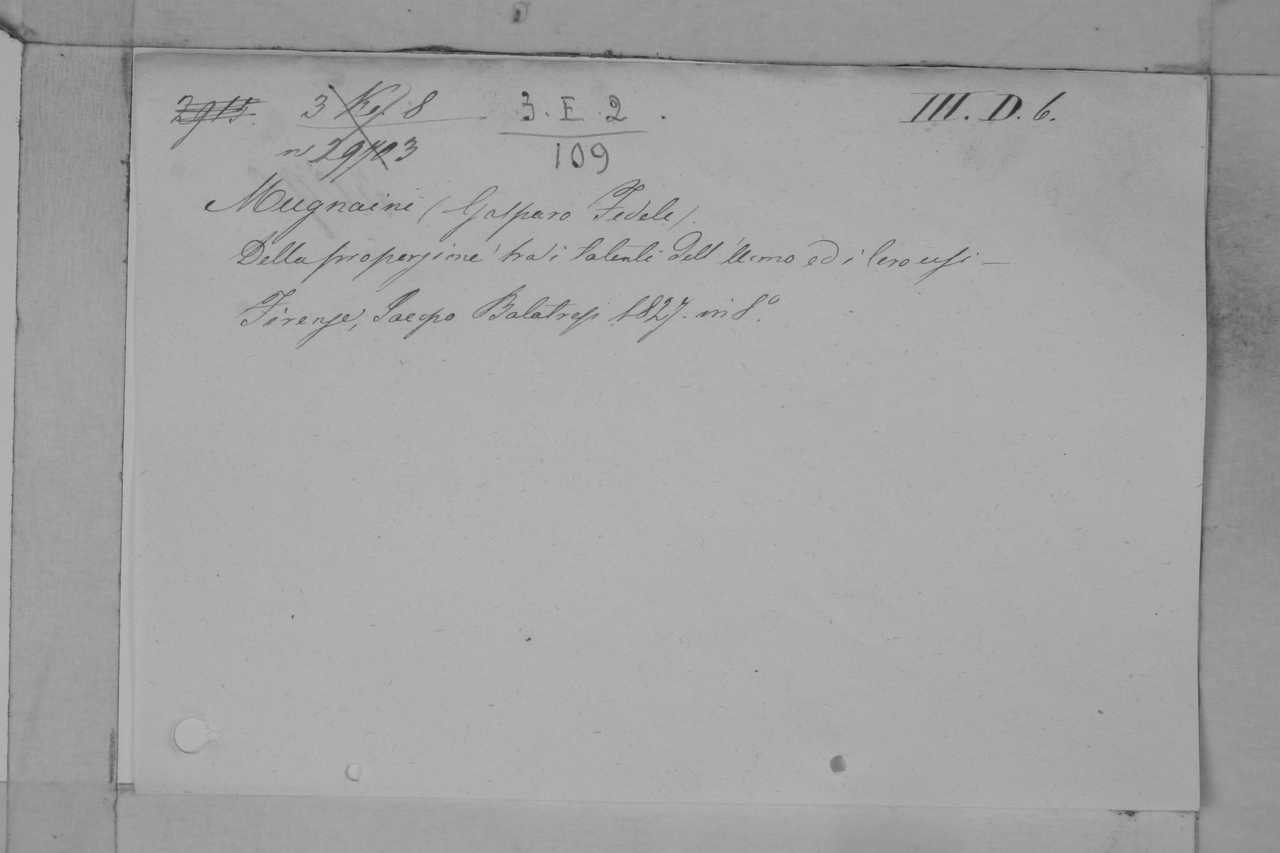 2915. 3 Kel. 8 3. E. 2. III. D. 6.
109
Mugnaini (Gasparo Fedele).
Della proporzione tra i talenti dell'Uomo ed i loro usi —
Firenze, Jacopo Balatresi 1827. in 8.°